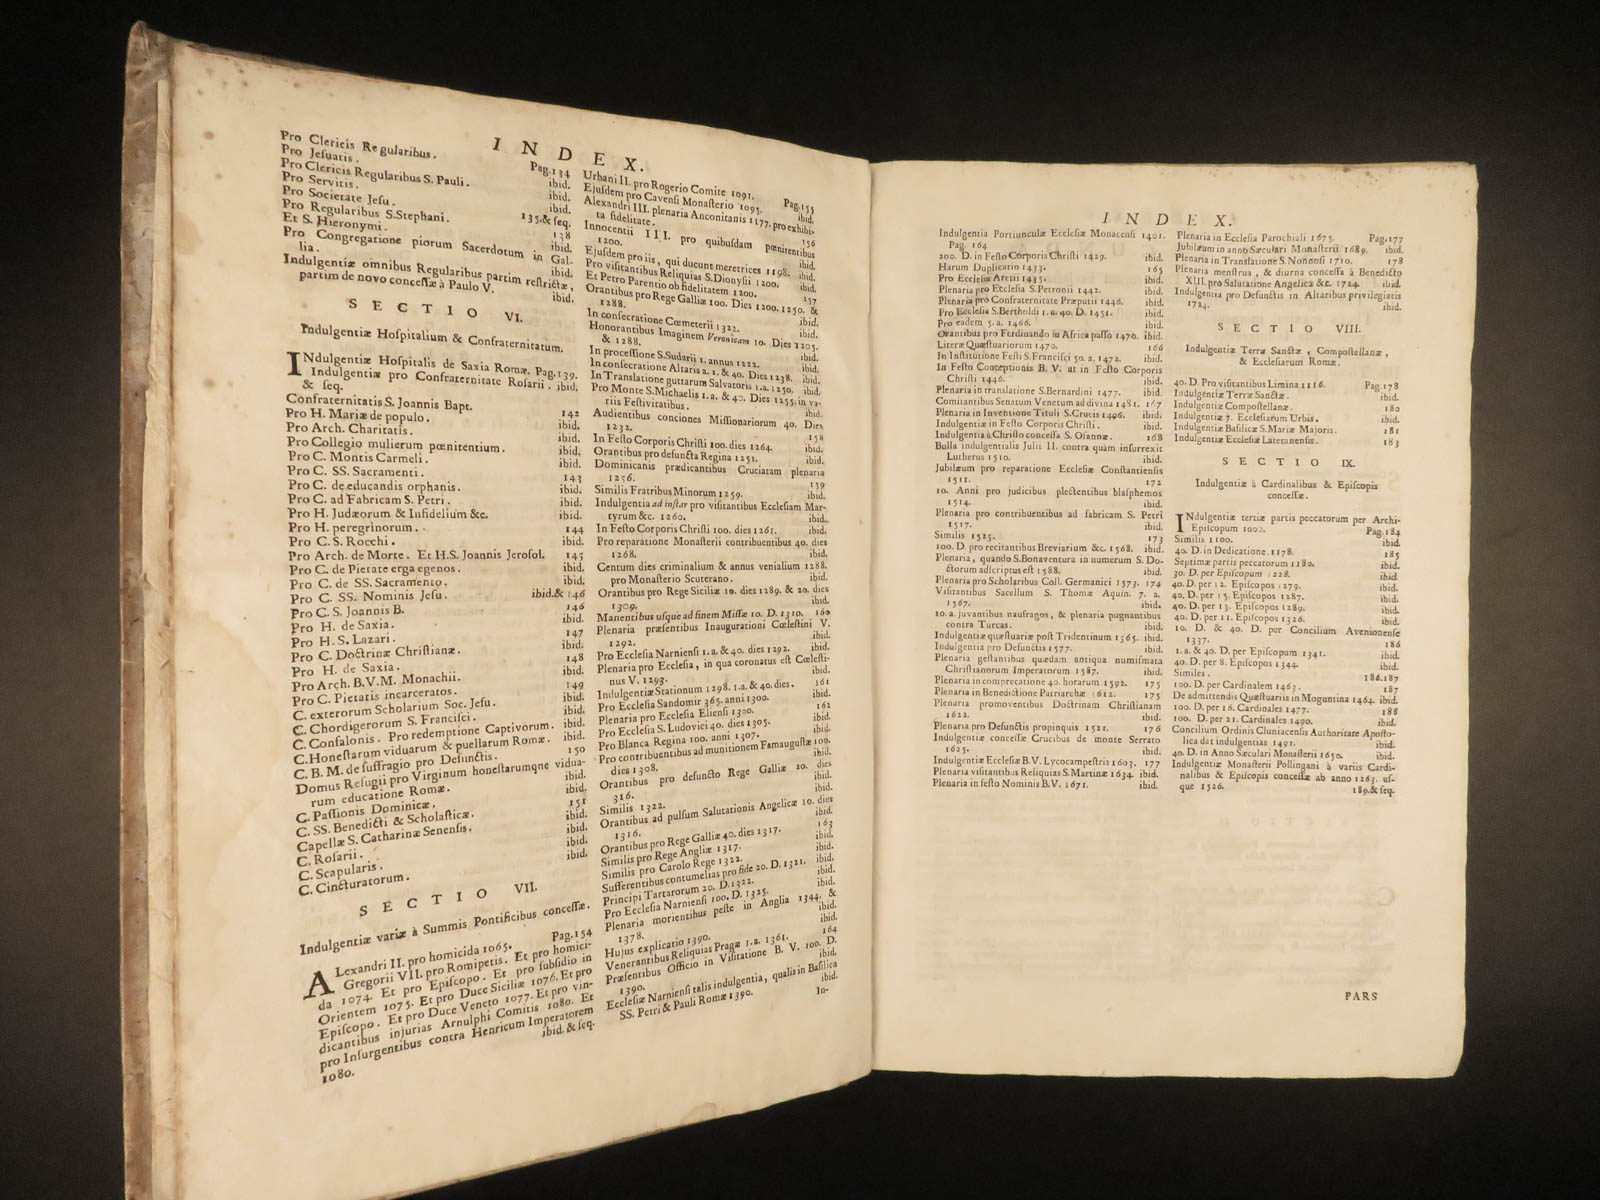 INDEX.
Pro Clericis Regularibus. Pag. 134
Pro Jesuatis. ibid.
Pro Clericis Regularibus S. Pauli. ibid.
Pro Servitis. ibid.
Pro Societate Jesu. 135. & seq.
Pro Regularibus S. Stephani. 138
Et S. Hieronymi. ibid.
Pro Congregatione piorum Sacerdotum in Gal-
lia. ibid.
Indulgentiæ omnibus Regularibus partim restrictæ,
partim de novo concessæ à Paulo V. ibid.
SECTIO VI.
Indulgentiæ Hospitalium & Confraternitatum.
INdulgentiæ Hospitalis de Saxia Romæ. Pag. 139.
Indulgentiæ pro Confraternitate Rosarii. ibid,
& seq.
Confraternitatis S. Joannis Bapt. 142
Pro H. Mariæ de populo. ibid.
Pro Arch. Charitatis. ibid.
Pro Collegio mulierum pœnitentium. ibid.
Pro C. Montis Carmeli. ibid.
Pro C. SS. Sacramenti. 143
Pro C. de educandis orphanis. ibid.
Pro C. ad Fabricam S. Petri. ibid.
Pro H. Judæorum & Infidelium &c. ibid.
Pro H. peregrinorum. 144
Pro C. S. Rocchi. ibid.
Pro Arch. de Morte. Et H.S. Joannis Jerosol. 145
Pro C. de Pietate erga egenos. ibid.
Pro C. de SS. Sacramento. ibid.
Pro C. SS. Nominis Jesu. ibid. & 146
Pro C. S. Joannis B. 146
Pro H. de Saxia. ibid.
Pro H. S. Lazari. 147
Pro C. Doctrinæ Christianæ. ibid.
Pro H. de Saxia. 148
Pro Arch. B.V.M. Monachii. ibid.
Pro C. Pietatis incarceratos. 149
C. exterorum Scholarium Soc. Jesu. ibid.
C. Chordigerorum S. Francisci. ibid.
C. Confalonis. Pro redemptione Captivorum. ibid.
C. Honestarum viduarum & puellarum Romæ. ibid.
C. B. M. de suffragio pro Defunctis. 150
Domus Refugii pro Virginum honestarumque vidua-
rum educatione Romæ. ibid.
C. Passionis Dominicæ. ibid.
C. SS. Benedicti & Scholasticæ. 151
Capellæ S. Catharinæ Senensis. ibid.
C. Rosarii. ibid.
C. Scapularis. ibid.
C. Cincturatorum. ibid.
SECTIO VII.
Indulgentiæ variæ à Summis Pontificibus concessæ.
ALexandri II. pro homicida 1065. Pag. 154
Gregorii VII. pro Romipetis. Et pro homici-
da 1074. Et pro Episcopo. Et pro subsidio in
Orientem 1075. Et pro Duce Siciliæ 1076. Et pro
Episcopo. Et pro Duce Veneto 1077. Et pro vin-
dicantibus injurias Arnulphi Comitis 1080. Et
pro Insurgentibus contra Henricum Imperatorem
1080. ibid. & seq.
Urbani II. pro Rogerio Comite 1091. Pag. 155
Ejusdem pro Cavensi Monasterio 1095. ibid.
Alexandri III. plenaria Anconitanis 1177. pro exhibi-
ta fidelitate. 156
Innocentii III. pro quibusdam pœnitentibus
1200. ibid.
Ejusdem pro iis, qui ducunt meretrices 1198. ibid.
Pro visitantibus Reliquias S. Dionysii 1200. ibid.
Et Petro Parentio ob fidelitatem 1200. 157
Orantibus pro Rege Galliæ 100. Dies 1200. 1250. &
1288. ibid.
In consecratione Cœmeterii 1322. ibid.
Honorantibus Imaginem Veronicam 10. Dies 1205.
& 1288. ibid.
In processione S. Sudarii 1. annus 1222. ibid.
In consecratione Altaris a. 1. & 40. Dies 1238. ibid.
In Translatione guttarum Salvatoris 1. a. 1250. ibid.
Pro Monte S. Michaelis 1. a. & 40. Dies 1255. in va-
riis Festivitatibus. ibid.
Audientibus conciones Missionariorum 40. Dies
1232. 158
In Festo Corporis Christi 100. dies 1264. ibid.
Orantibus pro defuncta Regina 1251. ibid.
Dominicanis prædicantibus Cruciatam plenaria
1256. 159
Similis Fratribus Minorum 1259. ibid.
Indulgentia ad instar pro visitantibus Ecclesiam Mar-
tyrum &c. 1260. ibid.
In Festo Corporis Christi 100. dies 1261. ibid.
Pro reparatione Monasterii contribuentibus 40. dies
1268. ibid.
Centum dies criminalium & annus venialium 1288.
pro Monasterio Scuterano. ibid.
Orantibus pro Rege Siciliæ 10. dies 1289. & 20. dies
1309. ibid.
Manentibus usque ad finem Missæ 10. D. 1310. 160
Plenaria præsentibus Inaugurationi Cœlestini V.
1292. ibid.
Pro Ecclesia Narniensi 1. a. & 40. dies 1292. ibid.
Plenaria pro Ecclesia, in qua coronatus est Cœlesti-
nus V. 1293. ibid.
Indulgentiæ Stationum 1298. 1. a. & 40. dies. 161
Pro Ecclesia Sandomir 365. anni 1300. ibid.
Plenaria pro Ecclesia Eliensi 1300. 162
Pro Ecclesia S. Ludovici 40. dies 1305. ibid.
Pro Blanca Regina 100. anni 1307. ibid.
Pro contribuentibus ad munitionem Famaugustæ 100.
dies 1308. ibid.
Orantibus pro defuncto Rege Galliæ 20. dies
316. ibid.
Similis 1322. ibid.
Orantibus ad pulsum Salutationis Angelicæ 10. dies
1316. 163
Orantibus pro Rege Galliæ 40. dies 1317. ibid.
Similis pro Rege Angliæ 1317. ibid.
Similis pro Carolo Rege 1322. ibid.
Sufferentibus contumelias pro fide 20. D. 1321. ibid.
Principi Tartarorum 20. D. 1322. ibid.
Pro Ecclesia Narniensi 100. D. 1325. ibid.
Plenaria morientibus peste in Anglia 1344. &
1378. ibid.
Hujus explicatio 1390. 164
Venerantibus Reliquias Pragæ 1. a. 1361. ibid.
Præsentibus Officio in Visitatione B. V. 100. D.
1390. ibid.
Ecclesiæ Narniensi talis indulgentia, qualis in Basilica
SS. Petri & Pauli Romæ 1390. ibid.
In-
INDEX.
Indulgentia Portiunculæ Ecclesiæ Monacensi 1401.
Pag. 164
200. D. in Festo Corporis Christi 1429. ibid.
Harum Duplicatio 1433. 165
Pro Ecclesia Aretii 1435. ibid.
Plenaria pro Ecclesia S. Petronii 1442. ibid.
Plenaria pro Confraternitate Præputii 1446. ibid.
Pro Ecclesia S. Bertholdi 1. a. 40. D. 1451. ibid.
Pro eadem 5. a. 1466. ibid.
Orantibus pro Ferdinando in Africa passo 1470. ibid.
Literæ Quæstuariorum 1470. 166
In Institutione Festi S. Francisci 50. a. 1472. ibid.
In Festo Conceptionis B. V. ut in Festo Corporis
Christi 1446. ibid.
Plenaria in translatione S. Bernardini 1477. ibid.
Comitantibus Senatum Venetum ad divina 1481. 167
Plenaria in Inventione Tituli S. Crucis 1496. ibid.
Indulgentiæ in Festo Corporis Christi. ibid.
Indulgentia à Christo concessa S. Osannæ. 168
Bulla indulgentialis Julii II. contra quam insurrexit
Lutherus 1510. ibid.
Jubilæum pro reparatione Ecclesiæ Constantiensis
1511. 172
10. Anni pro judicibus plectentibus blasphemos
1514. ibid.
Plenaria pro contribuentibus ad fabricam S. Petri
1517. ibid.
Similis 1525. 173
100. D. pro recitantibus Breviarium &c. 1568. ibid.
Plenaria, quando S. Bonaventura in numerum S. Do-
ctorum adscriptus est 1588. ibid.
Plenaria pro Scholaribus Coll. Germanici 1573. 174
Visitantibus Sacellum S. Thomæ Aquin. 7. a.
1567. ibid.
10. a. juvantibus naufragos, & plenaria pugnantibus
contra Turcas. ibid.
Indulgentiæ quæstuariæ post Tridentinum 1565. ibid.
Indulgentia pro Defunctis 1577. ibid.
Plenaria gestantibus quædam antiqua numismata
Christianorum Imperatorum 1587. ibid.
Plenaria in comprecatione 40. horarum 1592. 175
Plenaria in Benedictione Patriarchæ 1612. 175
Plenaria promoventibus Doctrinam Christianam
1622. ibid.
Plenaria pro Defunctis propinquis 1521. 176
Indulgentiæ concessæ Crucibus de monte Serrato
1625. ibid.
Indulgentiæ Ecclesiæ B.V. Lycocampestris 1603. 177
Plenaria visitantibus Reliquias S. Martinæ 1634. ibid.
Plenaria in festo Nominis B.V. 1671. ibid.
Plenaria in Ecclesia Parochiali 1675. Pag. 177
Jubilæum in anno Sæculari Monasterii 1689. ibid.
Plenaria in Translatione S. Nonnosi 1710. 178
Plenaria menstrua, & diurna concessa à Benedicto
XIII. pro Salutatione Angelica &c. 1724. ibid.
Indulgentia pro Defunctis in Altaribus privilegiatis
1724. ibid.
SECTIO VIII.
Indulgentiæ Terræ Sanctæ, Compostellanæ,
& Ecclesiarum Romæ.
40. D. Pro visitantibus Limina 1116. Pag. 178
Indulgentiæ Terræ Sanctæ. ibid.
Indulgentiæ Compostellanæ. 180
Indulgentiæ 7. Ecclesiarum Urbis. ibid.
Indulgentiæ Basilicæ S. Mariæ Majoris. 181
Indulgentiæ Ecclesiæ Lateranensis. 183
SECTIO IX.
Indulgentiæ à Cardinalibus & Episcopis
concessæ.
INdulgentiæ tertiæ partis peccatorum per Archi-
Episcopum 1000. Pag. 184
Similis 1100. ibid.
40. D. in Dedicatione. 1178. 185
Septimæ partis peccatorum 1180. ibid.
30. D. per Episcopum 1228. ibid.
40. D. per 12. Episcopos 1279. ibid.
40. D. per 15. Episcopos 1287. ibid.
40. D. per 13. Episcopos 1289. ibid.
40. D. per 11. Episcopos 1326. ibid.
10. D. & 40. D. per Concilium Avenionense
1337. 186
1. a. & 40. D. per Episcopum 1341. ibid.
40. D. per 8. Episcopos 1344. ibid.
Similes. 186. 187
100. D. per Cardinalem 1463. 187
De admittendis Quæstuariis in Moguntina 1464. ibid.
100. D. per 16. Cardinales 1477. 188
100. D. per 21. Cardinales 1490. ibid.
Concilium Ordinis Cluniacensis Authoritate Aposto-
lica dat indulgentias 1491. ibid.
40. D. in Anno Sæculari Monasterii 1650. ibid.
Indulgentiæ Monasterii Pollingani à variis Cardi-
nalibus & Episcopis concessæ ab anno 1263. us-
que 1526. 189. & seq.
PARS